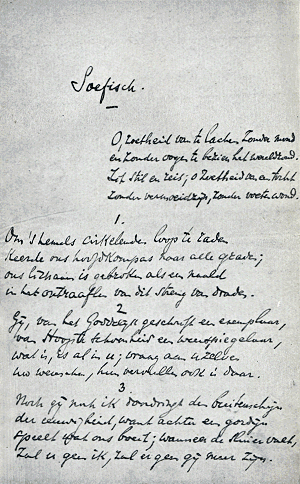 Soefisch.
O, zoetheid van te lachen zonder mond
en zonder oogen te bezien het wereldrond.
Zit stil en reis; o zoetheid van een tocht
zonder vermoeid zijn, zonder voetwond.
1.
Om 's hemels cirkelenden loop te raden
keerde ons hoofdkompas naar alle graden;
ons lichaam is gebroken als een naald
in het ontraaflen van dit streng van draden.
2
Gij, van het Godd'lijk geschrift en exemplaar,
van Hoogste schoonheid een weerspiegelaar,
wat is, is al in u; vraag aan uzelven
uw wenschen, hun vervullen ook is daar.
3
Noch gij noch ik doordringt den buitenschijn
der eeuwigheid, want achter een gordijn
speelt wat ons boeit; wanneer de sluier valt,
zal u geen ik, zal u geen gij meer zijn.